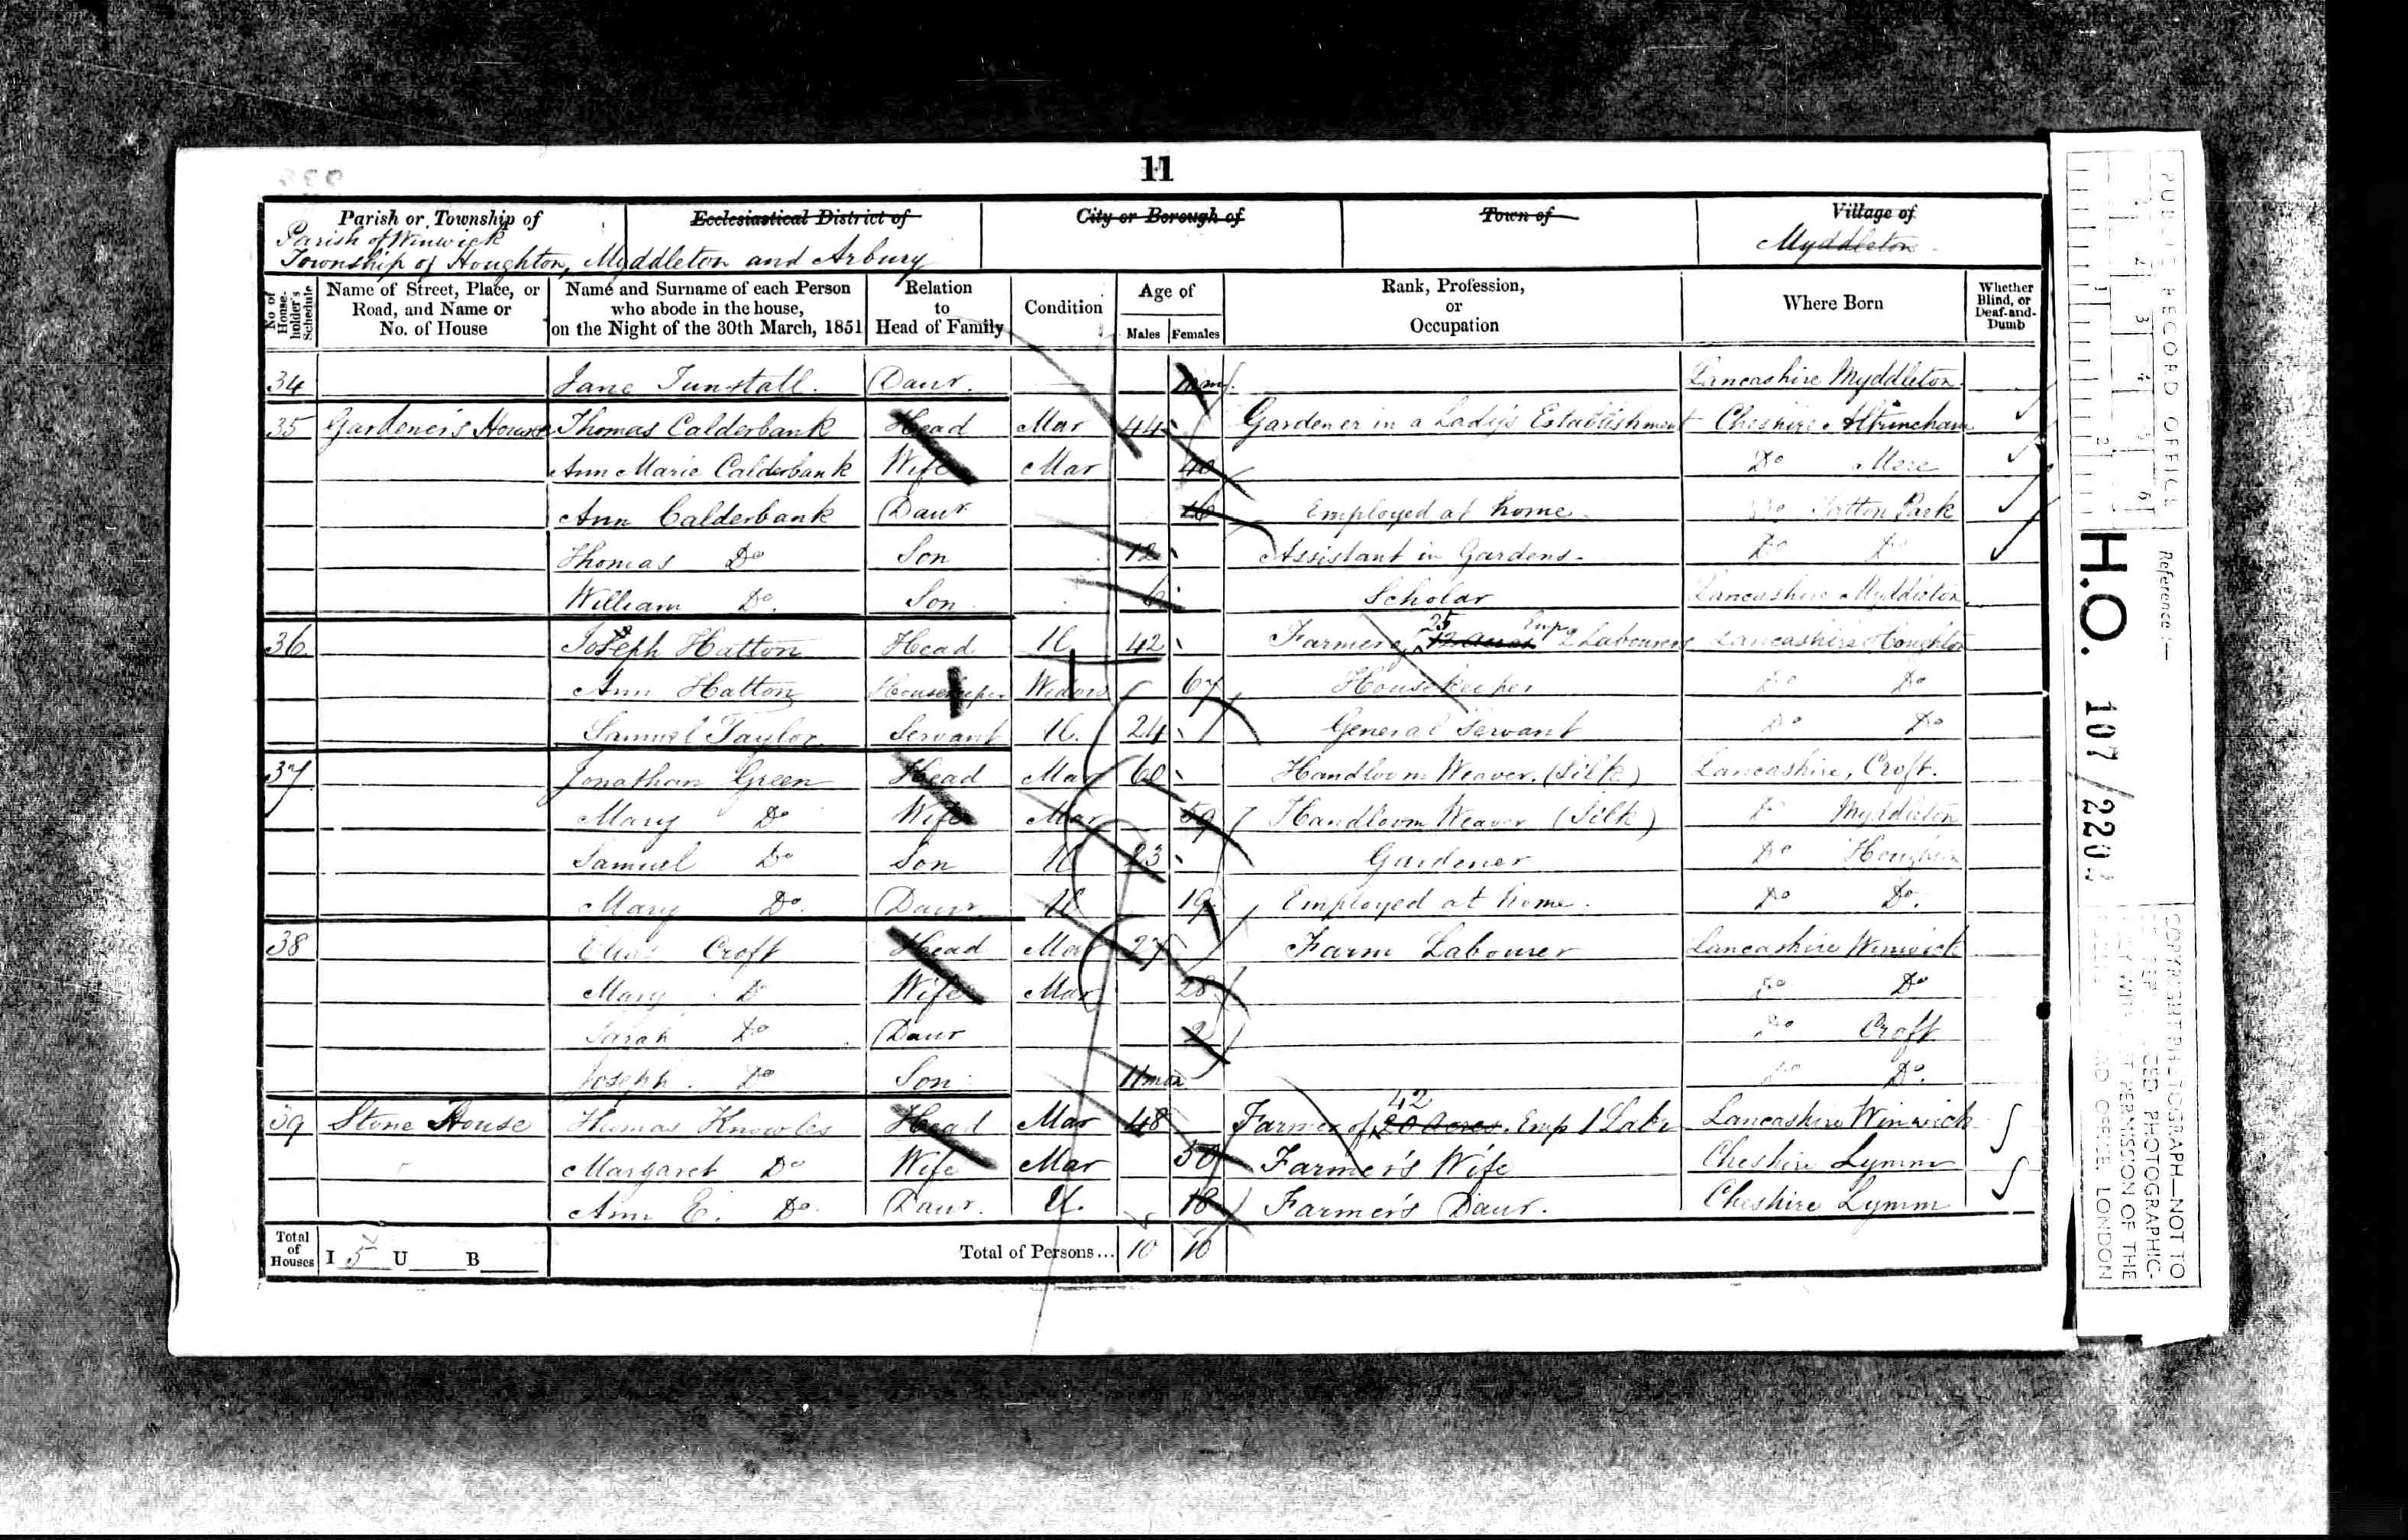 11
Parish or Township of Ecclesiastical District of City or Borough of Town of Village of
Parish of Winwick
Township of Houghton, Myddleton and Arbury Myddleton
No of House-holder's Schedule Name of Street, Place, or Road, and Name or No. of House Name and Surname of each Person who abode in the house, on the Night of the 30th March, 1851 Relation to Head of Family Condition Age of Males Females Rank, Profession, or Occupation Where Born Whether Blind, or Deaf-and-Dumb
34 Jane Tunstall. Daur. Lancashire Myddleton
35 Gardener's House Thomas Calderbank Head Mar 44 Gardener in a Lady's Establishment Cheshire Altrincham
Ann Marie Calderbank Wife Mar 40 Do Mere
Ann Calderbank Daur 16 Employed at home Do Tatton Park
Thomas Do Son 12 Assistant in Gardens Do Do
William Do. Son 6 Scholar Lancashire Myddleton
36 Joseph Hatton Head U. 42 Farmer of 25 12 acres Emp 2 Labourers Lancashire Houghton
Ann Hatton Housekeeper Widow 67 Housekeeper Do Do
Samuel Taylor Servant U. 24 General Servant Do Do
37 Jonathan Green Head Mar 60 Handloom Weaver. (Silk) Lancashire, Croft.
Mary Do Wife Mar 59 Handloom Weaver (Silk) Do Myddleton
Samuel Do Son U 23 Gardener Do Houghton
Mary Do. Daur U 19 Employed at home. Do Do.
38 Elias Croft Head Mar 27 Farm Labourer Lancashire Winwick
Mary Do Wife Mar 28 Do Do
Sarah Do Daur 2 Do Croft
Joseph. Do Son 11 mos Do Do.
39 Stone House Thomas Knowles Head Mar 48 Farmer of 42 20 acres. Emp 1 Labr Lancashire Winwick
Margaret Do Wife Mar 50 Farmer's Wife Cheshire Lymm
Ann E. Do. Daur. U. 18 Farmer's Daur. Cheshire Lymm
Total of Houses I 5 U B Total of Persons... 10 10
PUBLIC RECORD OFFICE
1 2 3 4 5 6
Reference:—
H.O. 107/220
COPYRIGHT PHOTOGRAPH—NOT TO
PHOTOGRAPHIC-
PERMISSION OF THE
OFFICE, LONDON